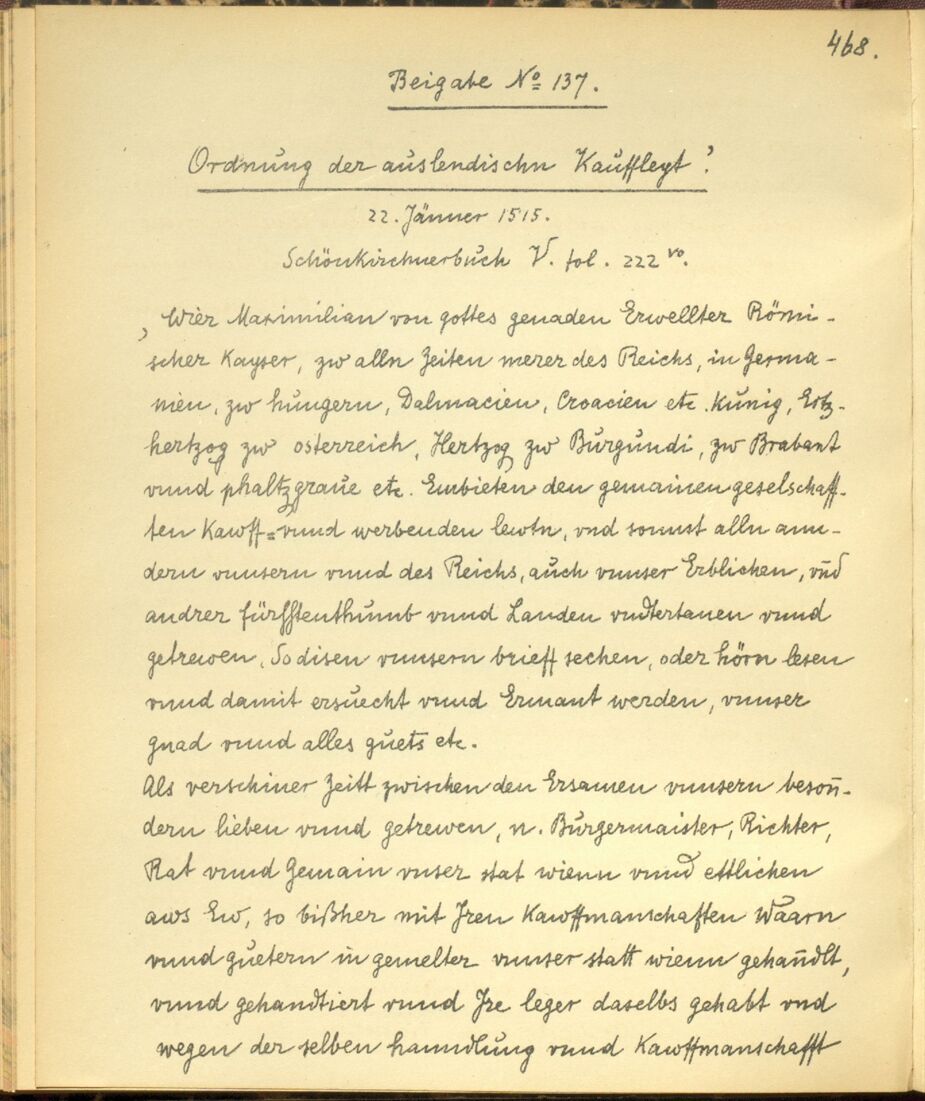 468.
Beigabe No 137.
Ordnung der auslendischn Kauffleyt'.
22. Jänner 1515.
Schönkirchnerbuch V. fol. 222 vo.
, Wier Maximilian von gottes genaden Erwellter Römi-
scher Kayser, zw alln Zeiten merer des Reichs, in Germa-
nien, zw hungern, Dalmacien, Croacien etc. Kunig, Ertz-
hertzog zw osterreich, Hertzog zw Burgundi, zw Brabant
vnnd phaltzgraue etc. Embieten den gemainen geselschaff-
ten Kawff= vnnd werbenden lewtn, vnd sonnst alln ann-
dern vnnsern vnnd des Reichs, auch vnnser Erblichen, vnd
andrer fürsstenthumb vnnd Landen vndtertanen vnnd
getrewen, So disen vnnsern brieff sechen, oder hörn lesen
vnnd damit ersuecht vnnd Ermant werden, vnnser
gnad vnnd alles guets etc.
Als verschiner Zeitt zwischen den Ersamen vnnsern beson̄-
dern lieben vnnd getrewen, n. Burgermaister, Richter,
Rat vnnd Gemain vnser stat wienn vnnd ettlichen
aws Ew, so bißher mit Jren Kawffmanschafften Waarn
vnnd guetern in gemelter vnnser statt wienn gehan̄dlt,
vnnd gehandtiert vnnd Jre leger daselbs gehabt vnd
wegen der selben hanndlung vnnd Kawffmanschafft